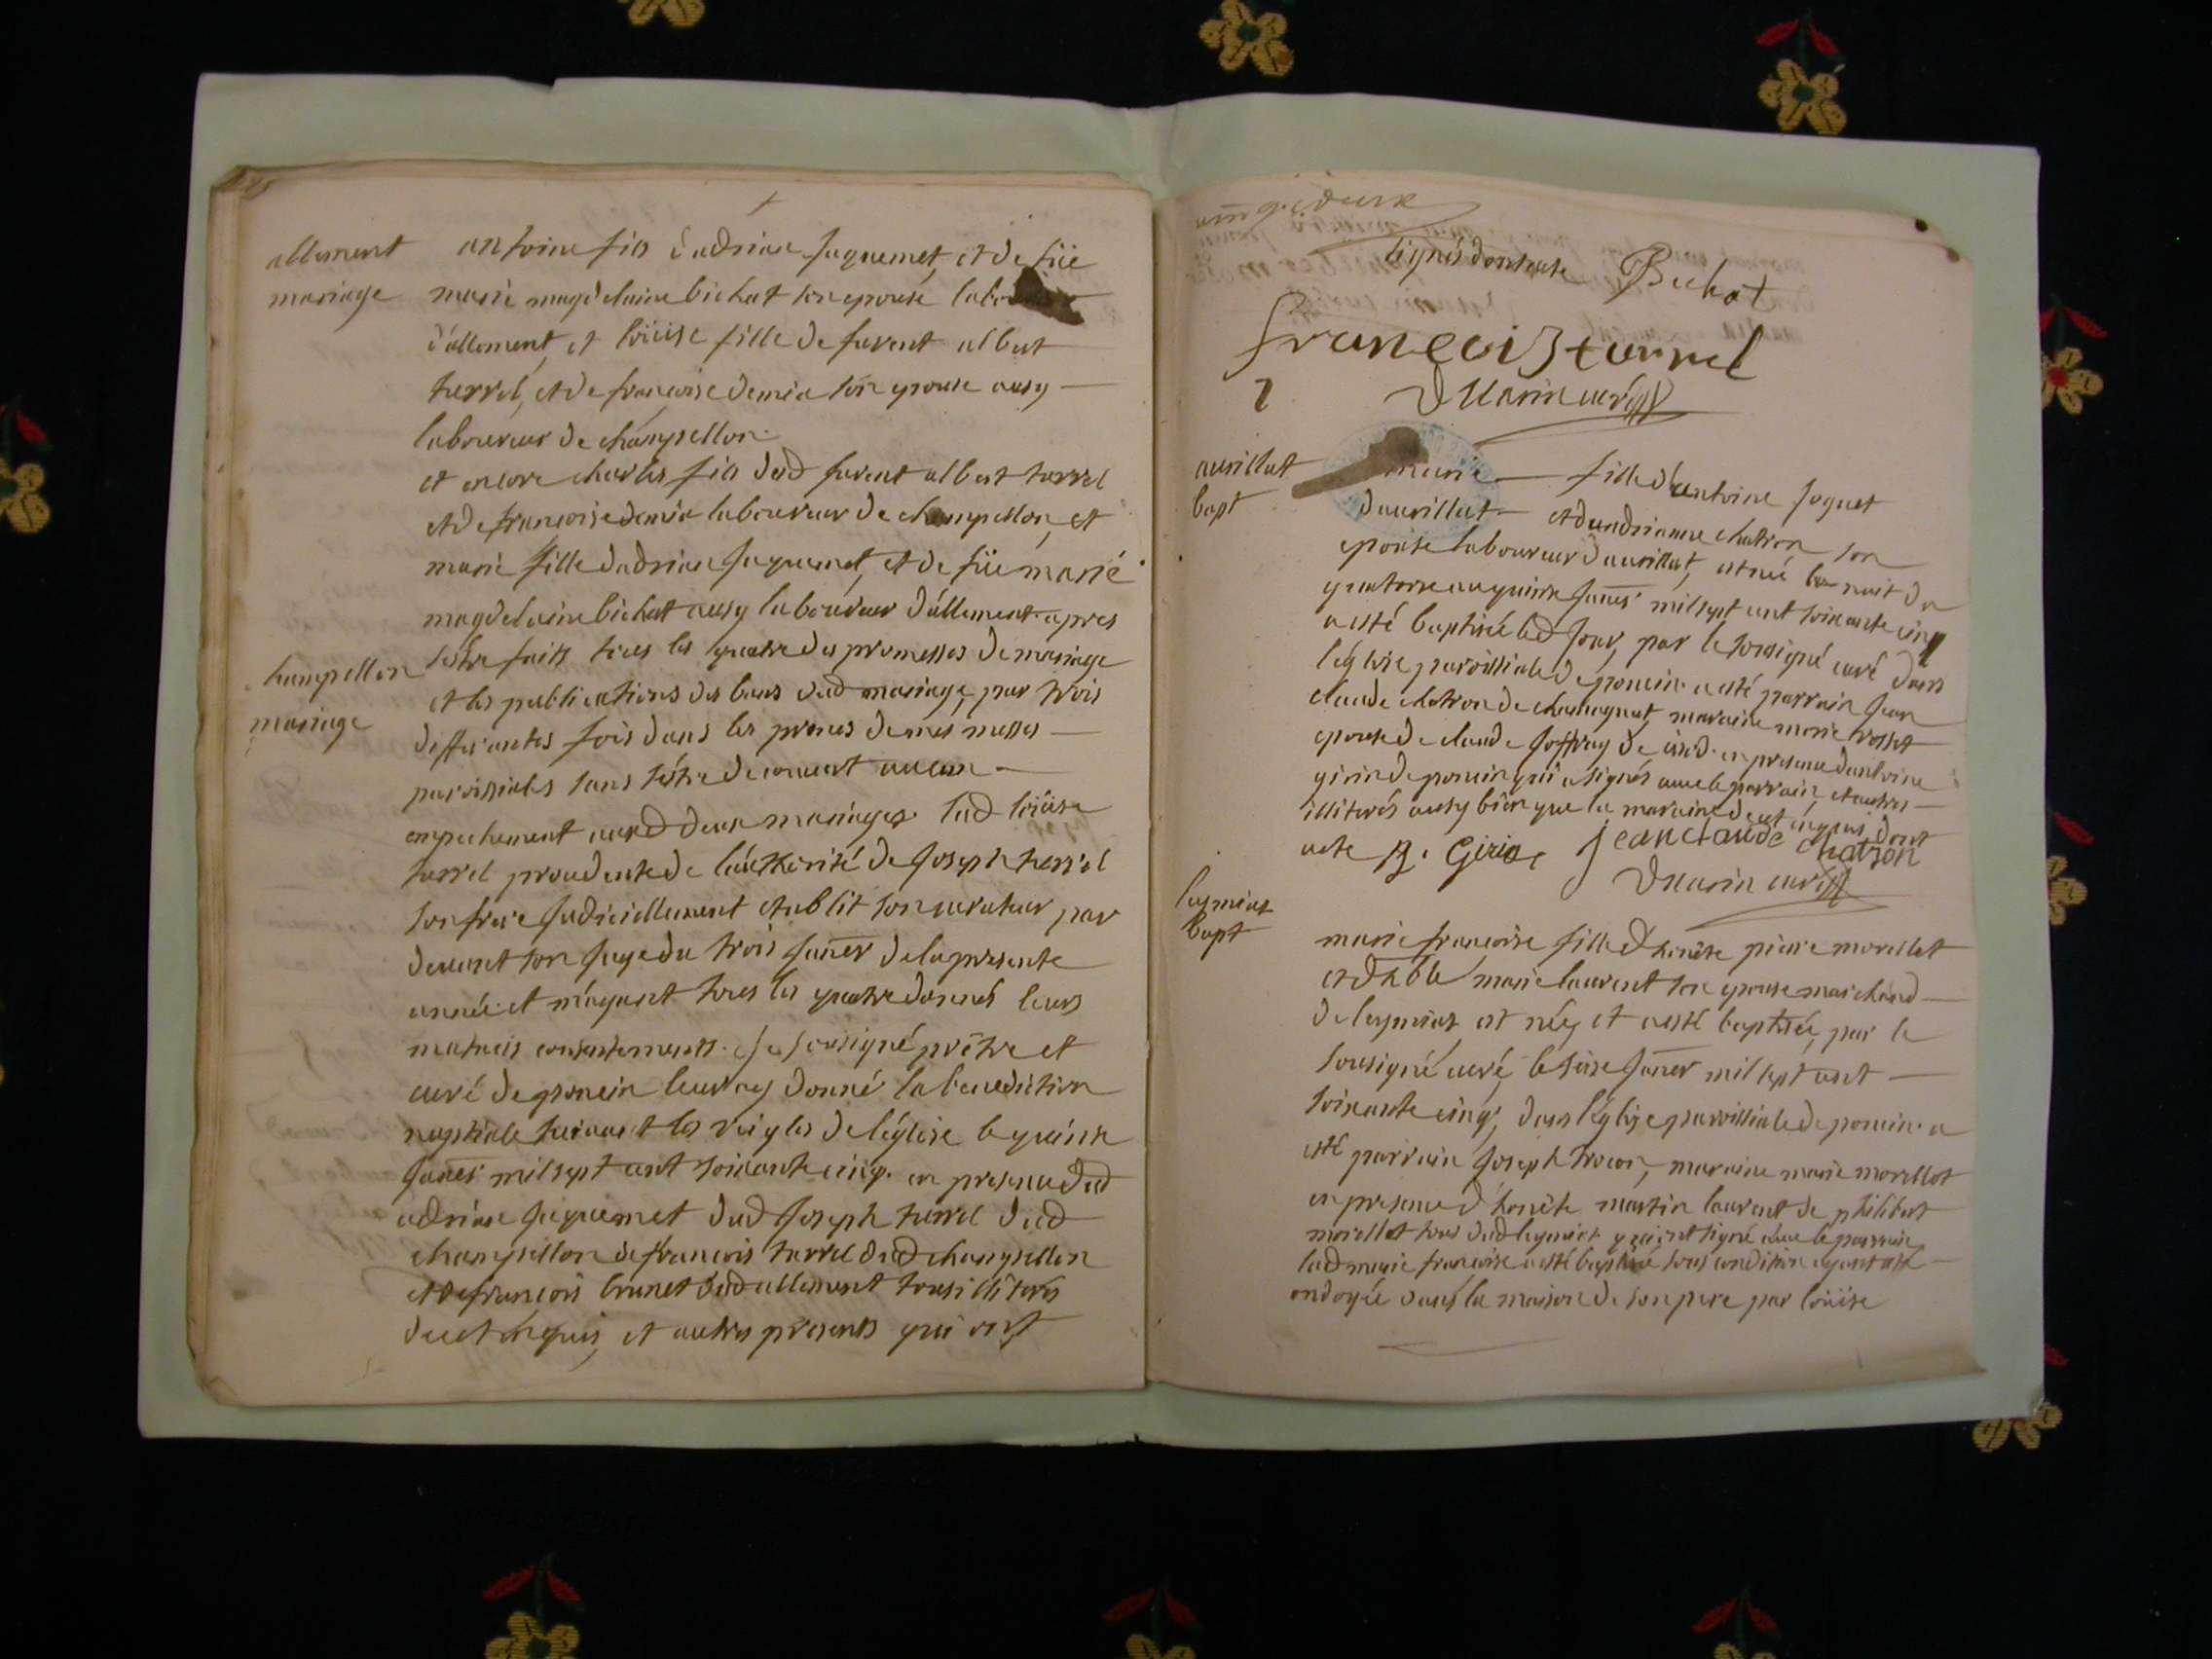 allement
mariage
antoine fils d'adrien jaquemet, et de füe
marie magdelaine bichat son epouse
d'allement, et loüise fille de furent albert
terrel, et de françoise demia son epouse aussy
laboureur de champellon.
et encore charles fils dud furent albert terrel
et de françoise demia laboureur de champellon, et
marie fille d'adrien jaquemet, et de füe marie
magdelaine bichat aussy laboureur d'allement. apres
s'estre faits tous les quatre des promesses de mariage
hampellon
mariage
et les publications des bans dud mariage, par trois
differantes fois dans les prones de mes messes
paroissiales sans s'éstre decouvert aucun
empechement auxd deux mariages. lad loüise
terrel procedente de l'aucthorité de joseph terrel
son frere judiciellement etablit son curateur par
devant son juge du trois janer de la presente
année. et m'ayant tous les quatre donnés leurs
mutuels consentements. je sousigné prêtre et
curé de poncin leur ay donné la benediction
nuptiale suivant les reigles de l'église le quinse
janer mil sept cent soixante cinq. en presence dud
adriene jaquemet dud joseph terrel dud
champellon de francois terrel dud champellon
et de françois brunet dud allement tous illiterés
deuement enquis, et autres présents qui ont
signés dont acte Bichat
francois terrel
D Marin curé
aurillat
bapt
marie fille d'antoine joguet
d'aurillat et d'andrianne chatron son
epouse laboureur d'aurillat, est née la nuit du
quatorse au quinse janer mil sept cent soixante cinq
a esté baptisée led jour, par le sousigné curé dans
l'églsie paroissiale de poncin. a esté parrain jean
claude chatron de chamagnat, maraine marie rosset
epouse de claude joffray de en presence d'antoine
girin de poncin qui a signés avec le parrain, et autres
illiterés aussy bien que la maraine de ce enquis dont
acte A. Girin jean claude chatron
D Marin curé
leymiat
bapt
marie françoise fille d honéste pierre morellet
et d hble marie laurent son epouse marchand
de leymiat est née, et a esté baptisée, par le
sousigné curé, le seise janer mil sept cent
soixante cinq, dans l'églsie paroissiale de poncin. a
esté parrain joseph trocon, maraine marie morellot
en presence d'honéste martin laurent de philibert
morellot tous dud leymiat qui ont signé avec le parrain
lad marie francoise a esté baptisée sous condition ayant esté
ondoyée dans la maison de son pere par loüise